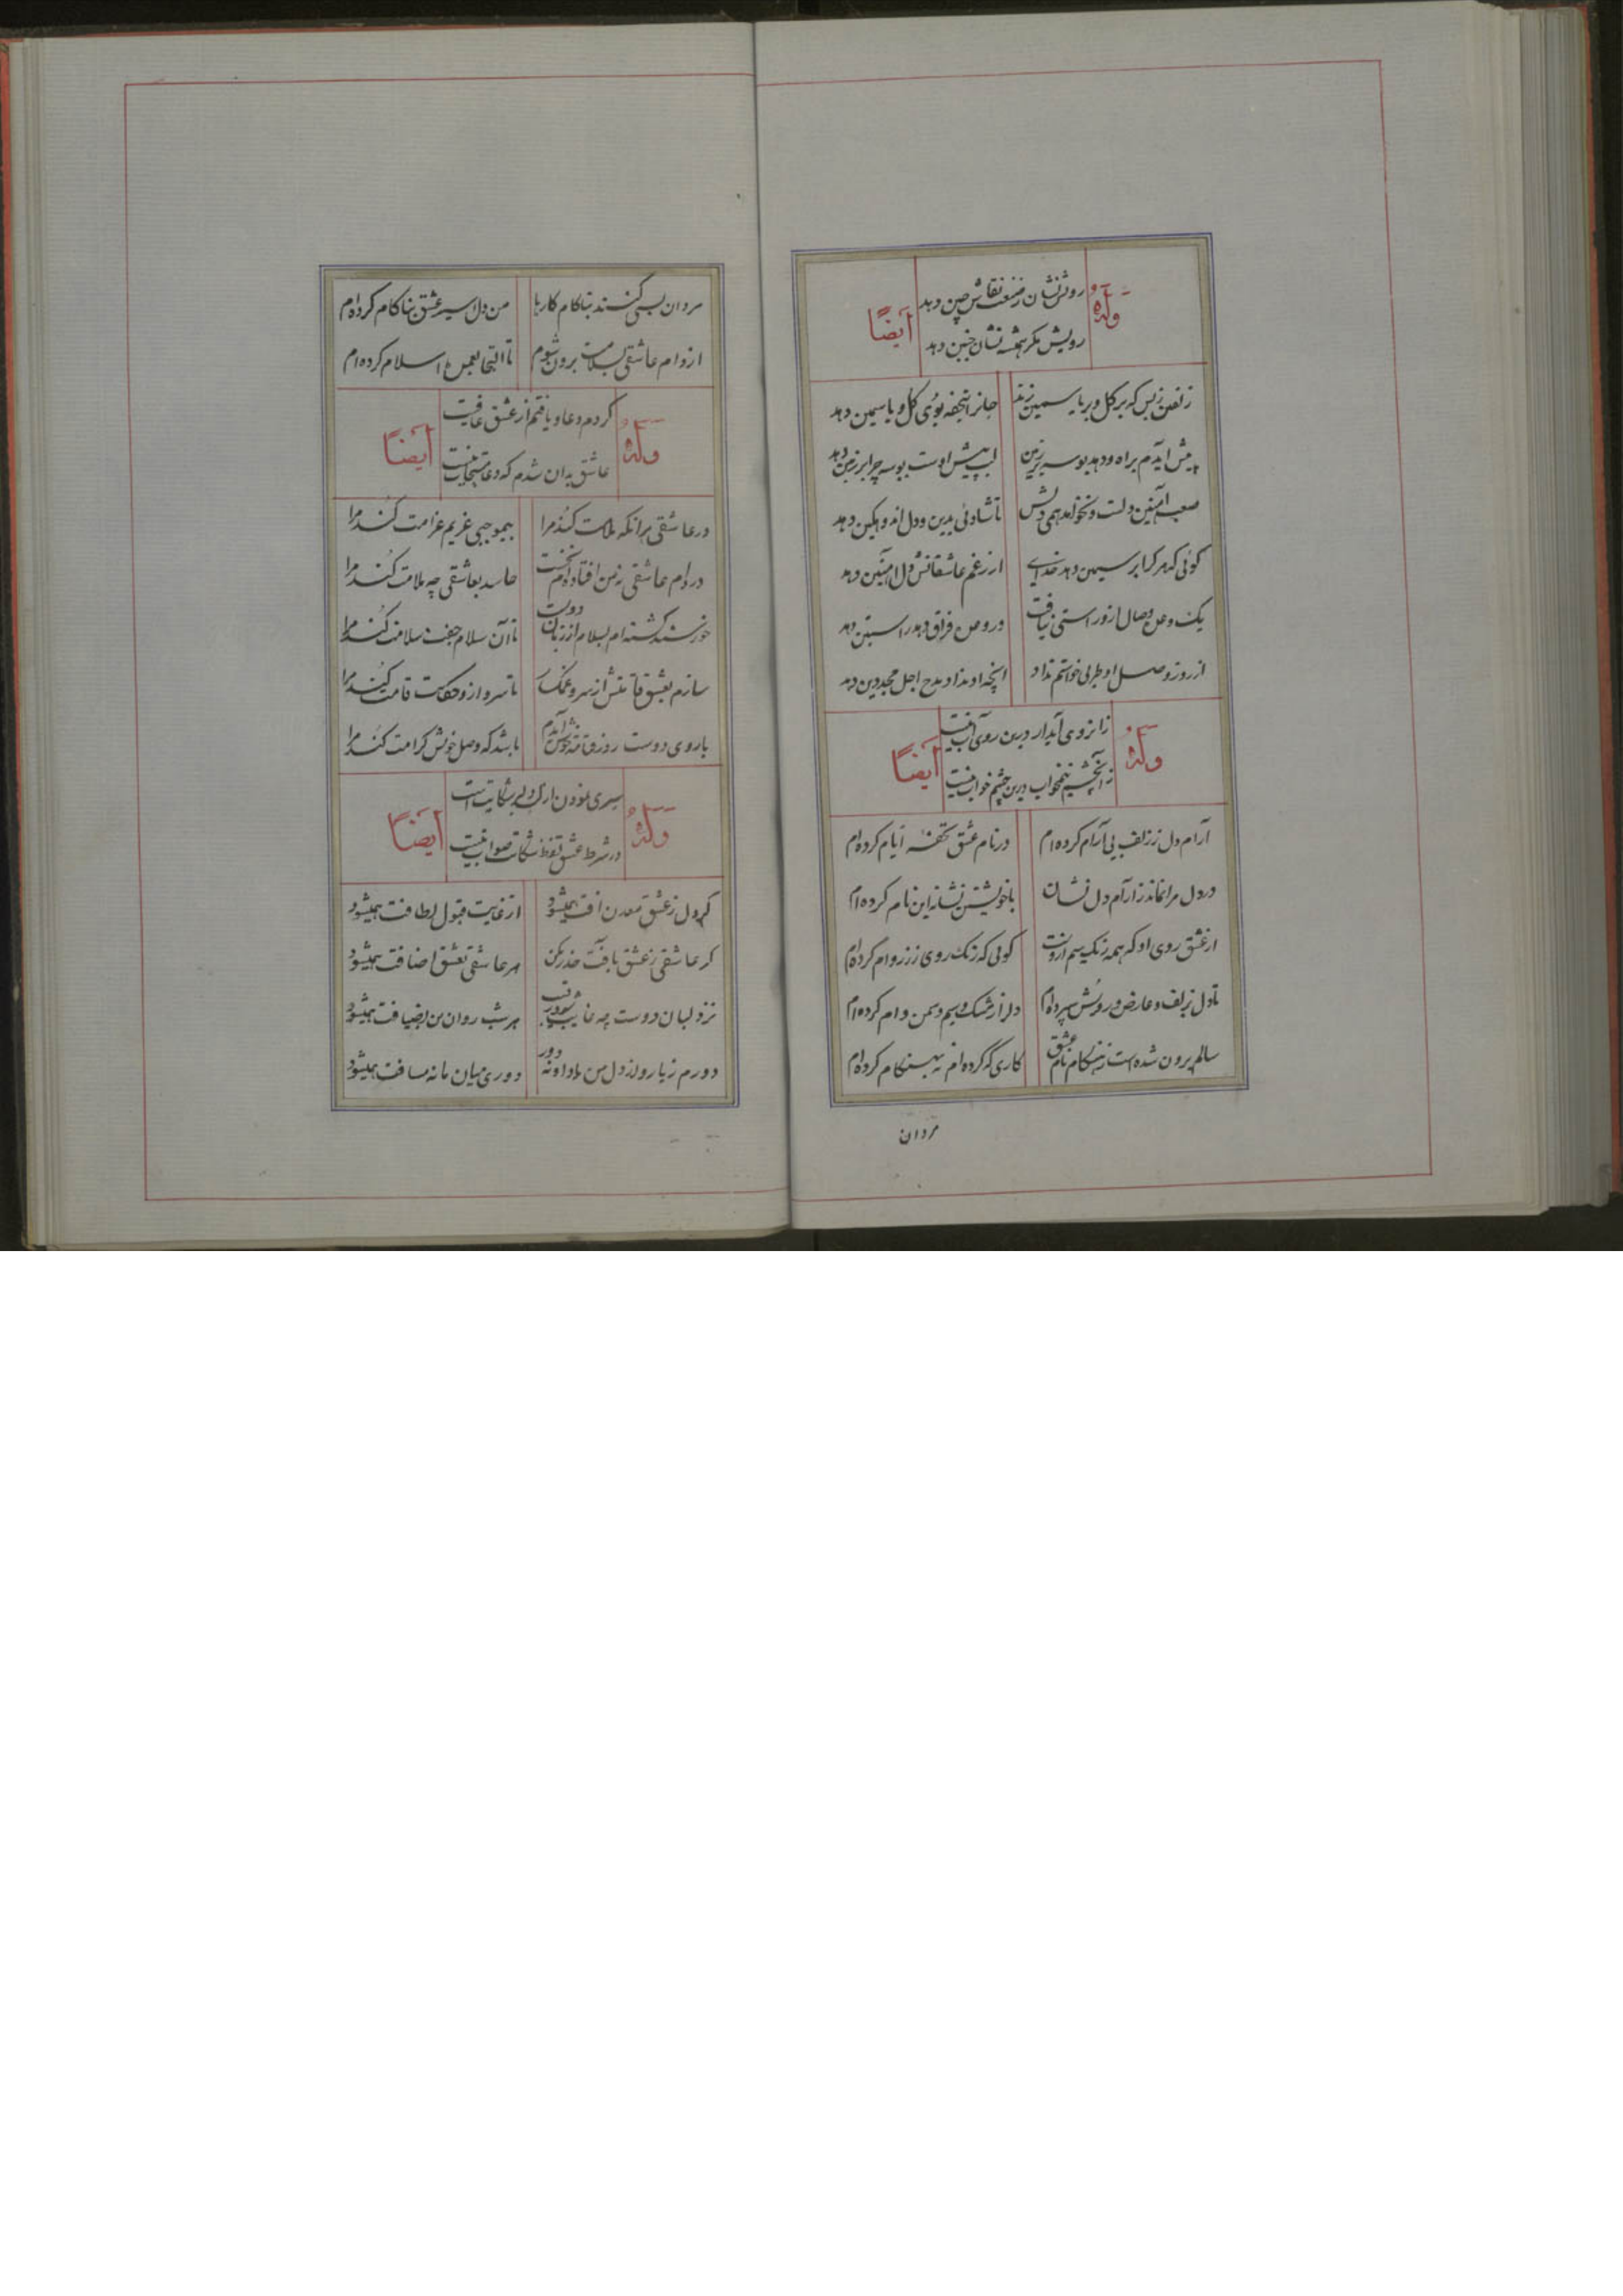 وله
روئش نشان ز صنعت نقاش چین دهد
رویش مگر همیشه نشان چنین دهد
ایضاً
زلفش ز بس که بر گل و بر یاسمین زند
جانرا تحفه بوی گل و یاسمین دهد
پیش آیدم براه و دهد بوسه بر زمین
لب پیش اوست بوسه چرا بر زمین دهد
تا شادئی بدین و دل اندوهگین دهد
گوئی که مر کرا بر سیمین دهد خدای
از رغم عاشقانش دل آهنین دهد
یک وعده وصال ازو راستی نیافت
در وعده فراق دهد راستین دهد
از روز وصل او طربی خواستم نداد
آنچه او نداد مدح اجل مجددین دهد
وله
زانروی آبدار درین روی آب نیست
زان چشم نیمخواب درین چشم خواب نیست
ایضاً
آرام دل ز زلف بی آرام کرده ام
در نام عشق تحفه ایام کرده ام
در دل مرا نماند ز آرام دل نشان
با خویشتن نشانه این نام کرده ام
از عشق روی او که همه رنگ سیم ازوست
گوئی که رنگ روی ز زر وام کرده ام
تا دل بزلف و عارض و رویش سپرده ام
دل از مشک و سیم و سمن وام کرده ام
سالم برون شده است ز هنگام نام عشق
کاری که کرده ام نه بهنگام کرده ام
مردان
مردان بسی کنند بناکام کارها
من دل اسیر عشق بناکام کرده ام
از وام عاشقی بسلامت برون شوم
تا التجا بعمده اسلام کرده ام
وله
کردم دعا و یافتم از عشق عافیت
عاشق به آن شدم که دعا مستجاب نیست
ایضاً
در عاشقی هر آنکه ملامت کند مرا
بیموجبی غریم غرامت کند مرا
در دام عاشقی نه من افتاده ام نخست
حاسد بعاشقی چه ملامت کند مرا
خورسند گشته ام بسلام از زبان دوست
تا آن سلام جفت سلامت کند مرا
سازم بعشق قامتش از سرو غمگسار
تا سرو ازو حکایت قامت کند مرا
با روی دوست روز قیامت خوش آیدم
باشد که وصل خویش کرامت کند مرا
وله
سیری نمودن از ک دلبر شکایت است
در شرط عشق لفظ شکایت صواب نیست
ایضاً
گر دل ز عشق معدن آفت همیشود
از غایت قبول لطافت همیشود
گر عاشقی ز عشق بآفت حذر مکن
هر عاشقی بعشق اضافت همیشود
نزد لبان دوست چه غایب شود رقیب
هر شب روان من بضیافت همیشود
دورم ز یار و از دل من یاد او نه دور
دوری میان ما نه مسافت همیشود